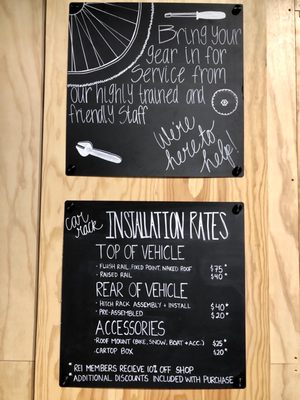 Bring your
gear in for
Service from
our highly trained and
friendly Staff
We're
here to
help!
car
rack
INSTALLATION RATES
TOP OF VEHICLE
- FLUSH RAIL, FIXED POINT, NAKED ROOF $75*
- RAISED RAIL $40*
REAR OF VEHICLE
- HITCH RACK ASSEMBLY + INSTALL $40*
- PRE-ASSEMBLED $20*
ACCESSORIES
- ROOF MOUNT (BIKE, SNOW, BOAT + ACC.) $25*
- CARTOP BOX $20*
* REI MEMBERS RECIEVE 10% OFF SHOP
* ADDITIONAL DISCOUNTS INCLUDED WITH PURCHASE